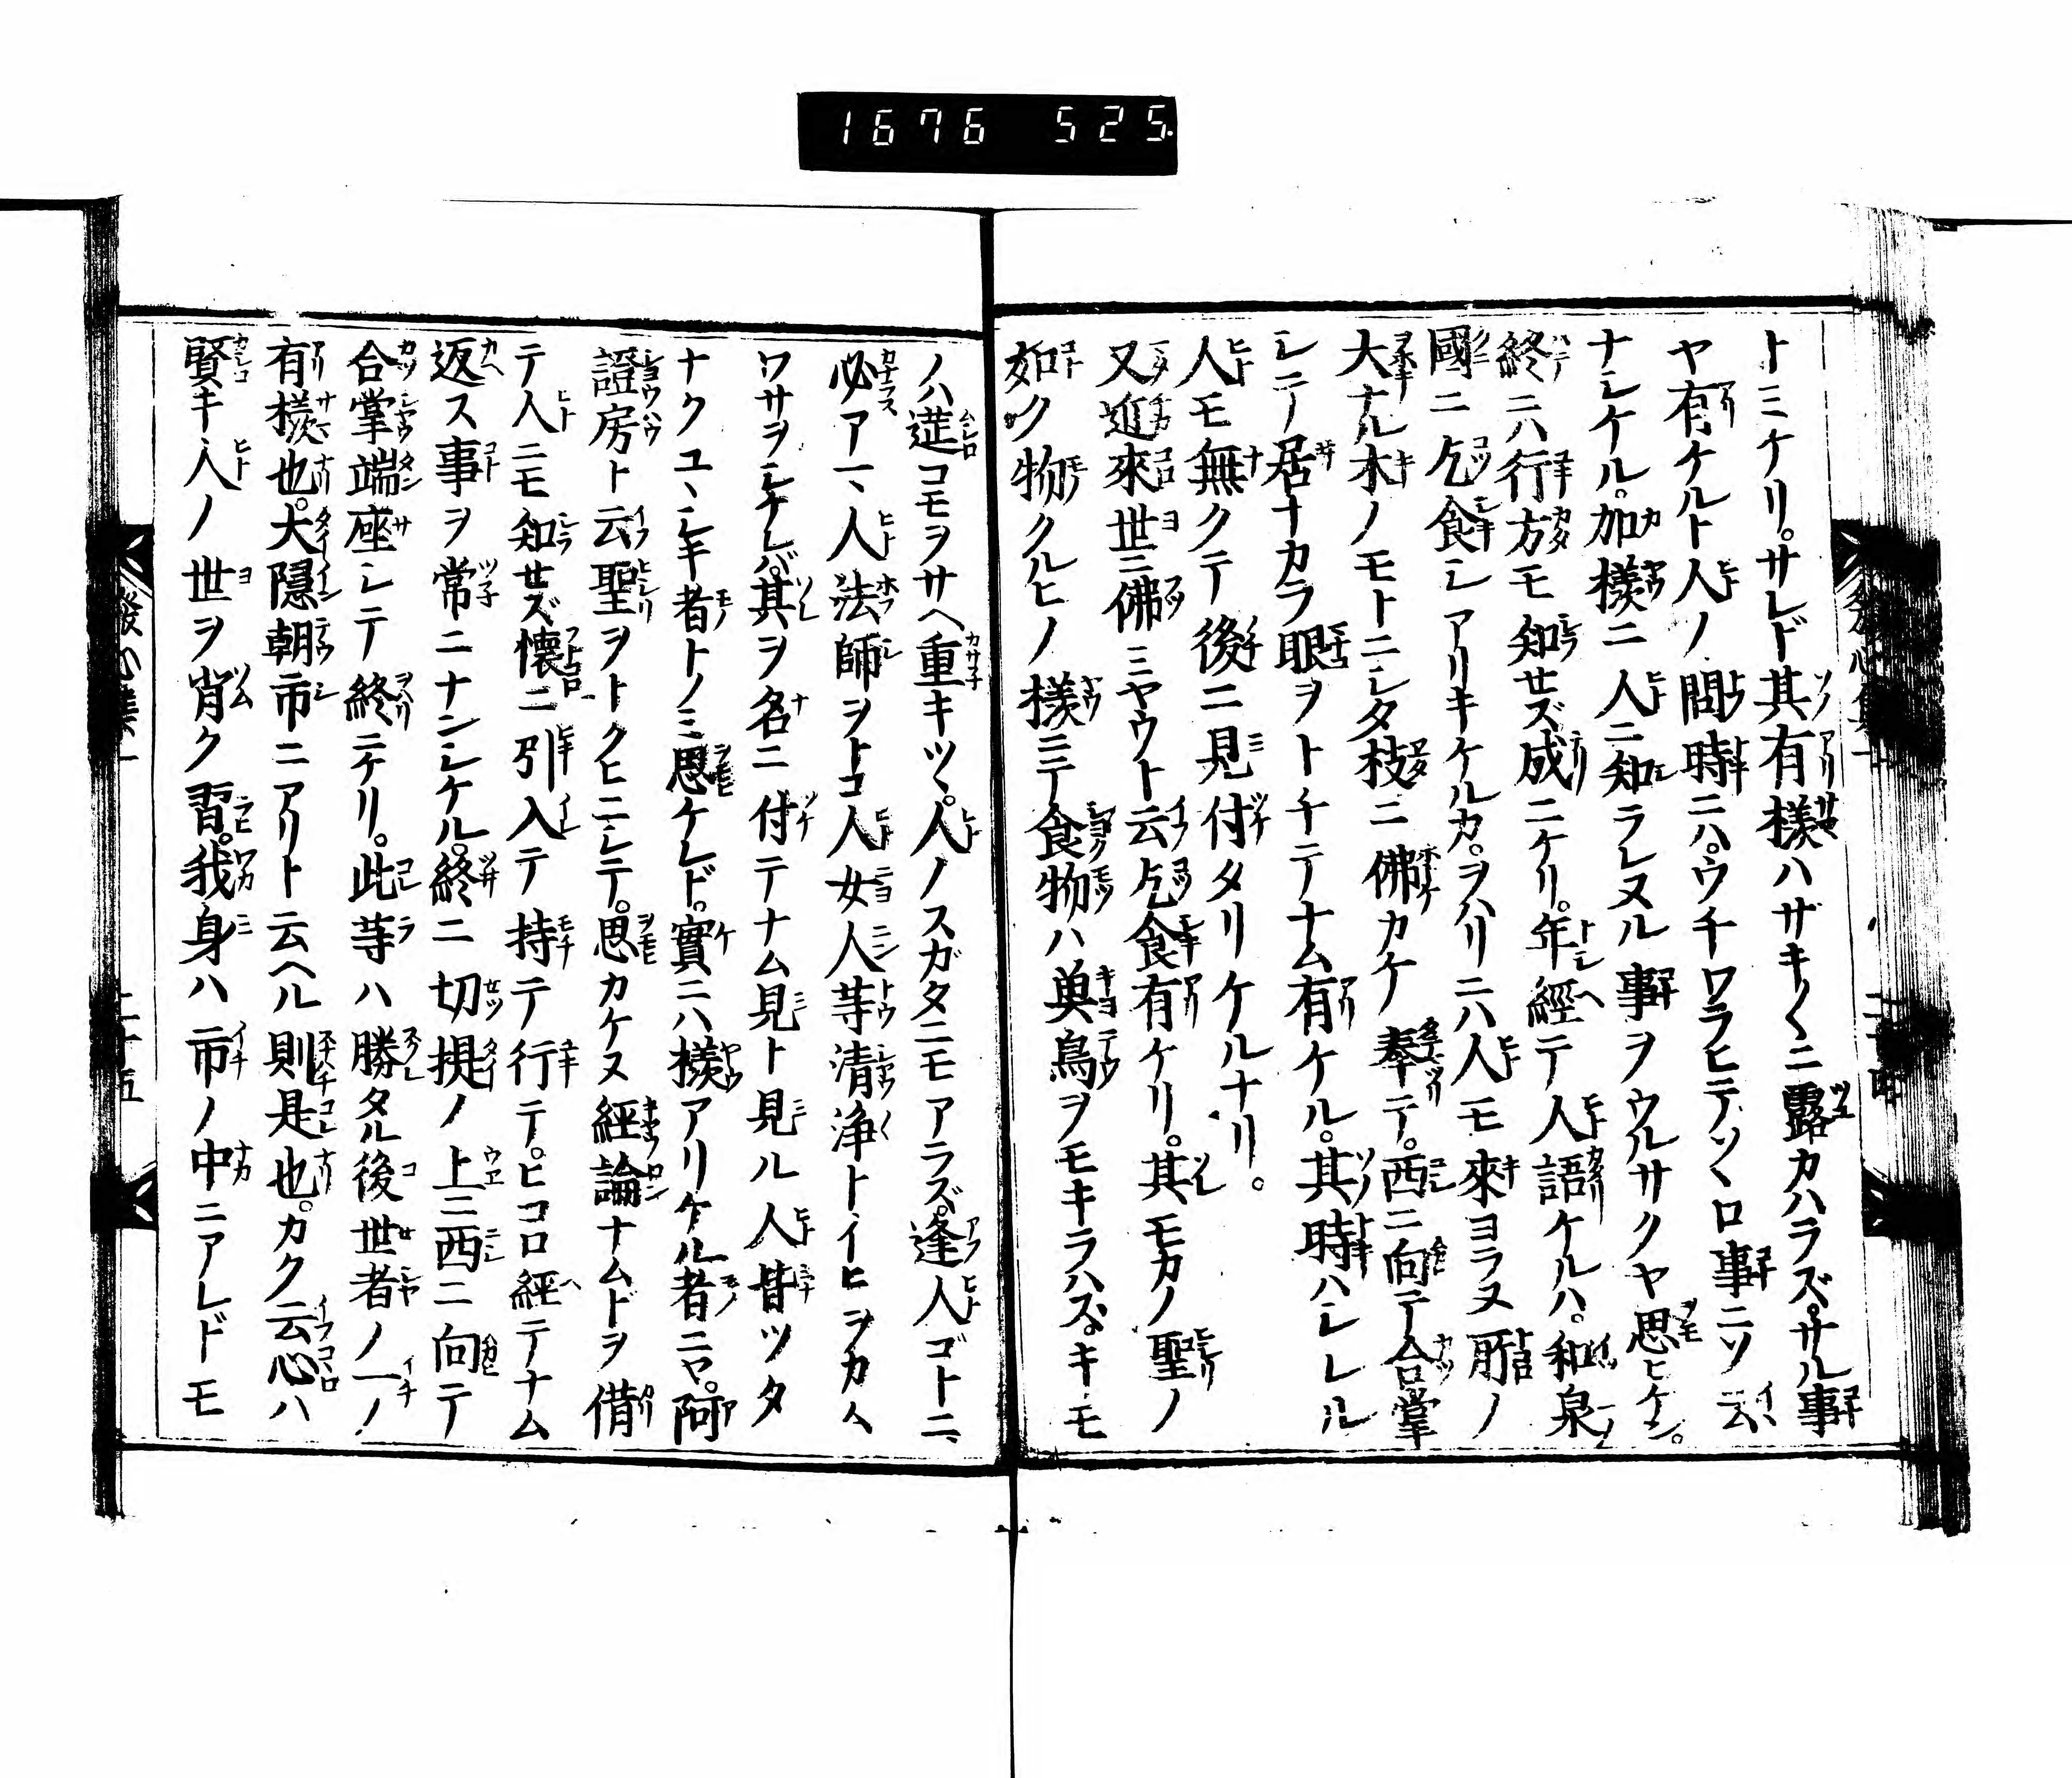 1676 525
トミケリ。サレド其有様ハサキ〱ニ露カハラズ。サル事
ヤ有ケルト人ノ問時ニハ。ウチワラヒテソヽロ事ニソ云
ナシケル。加様ニ人ニ知ラレヌル事ヲウルサクヤ思ヒケン。
終ニハ行方モ知せズ成ニケリ。年經テ人語ケルハ。和泉
國ニ乞食シアリキケルカ。ヲハリニハ人モ來ヨラヌ所ノ
大ナル木ノモトニシタ枝ニ佛カケ奉テ。西ニ向テ合掌
シテ居ナカラ眼ヲトチテナム有ケル。其時ハシレル
人モ無クテ後ニ見付タリケルナリ。
又近來世ニ佛ミヤウト云乞食有ケリ。其モカノ聖ノ
如ク物クルヒノ様ニテ食物ハ魚鳥ヲモキラハズ。キモ
ノハ莚コモヲサヘ重キツヽ。人ノスガタニモアラズ。逢人ゴトニ
必アマ人法師ヲトコ人女人等清浄トイヒヲカム
ワサヲシケレバ。其ヲ名ニ付テナム見ト見ル人皆ツタ
ナクユヽシキ者トノミ思ケレド。實ニハ様アリケル者ニヤ。阿
證房ト云聖ヲトクヒニシテ。思カケヌ經論ナムドヲ借
テ人ニモ知せズ懐ニ引入テ持テ行テ。ヒコロ經テナム
返ス事ヲ常ニナンシケル。終ニ切提ノ上ニ西ニ向テ
合掌端座シテ終ニケリ。此等ハ勝タル後世者ノ一ノ
有様也。大隱朝市ニアリト云ヘル則是也。カク云心ハ
賢キ人ノ世ヲ背ク習。我身ハ市ノ中ニアレドモ
發心集一
二十五